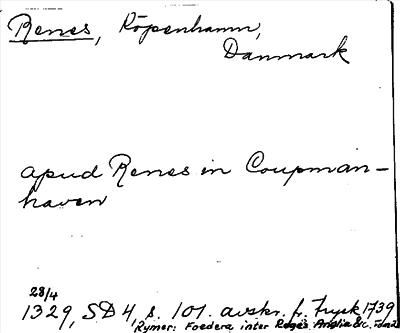 Renes, Köpenhamn,
Danmark
apud Renes in Coupman-
haven
28/4
1329, SD 4, s. 101. avskr. fr. Tryck 1739
Rymer: Foedera inter Reges Angliae